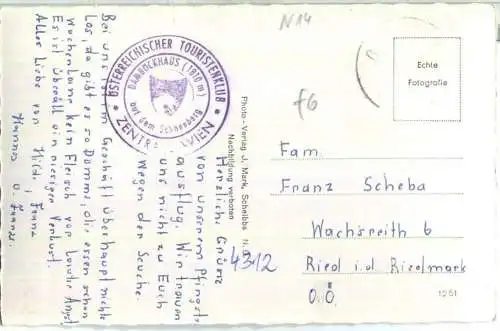 N14
f6
ÖSTERREICHISCHER TOURISTENKLUB
DAMBÖCKHAUS (1810 m)
auf dem Schneeberg
ZENTRALE WIEN
Herzliche Grüße
von unserem Pfingst-
ausflug. Wir trauen
uns nicht zu Euch
wegen der Seuche.
Bei uns ist im Geschäft überhaupt nichts
los, da gibt es so Damme, die essen schon
Wochenlang kein Fleisch vor lauter Angst
Es ist überall ein riesiger Verlust.
Alles Liebe von
Hannes u.
4312
Photo-Verlag J. Mark, Scheibbs N.
Nachbildung verboten
Echte
Fotografie
Fam.
Franz Scheba
Wachsreith 6
Ried i. d. Riedmark
O.Ö.
1251